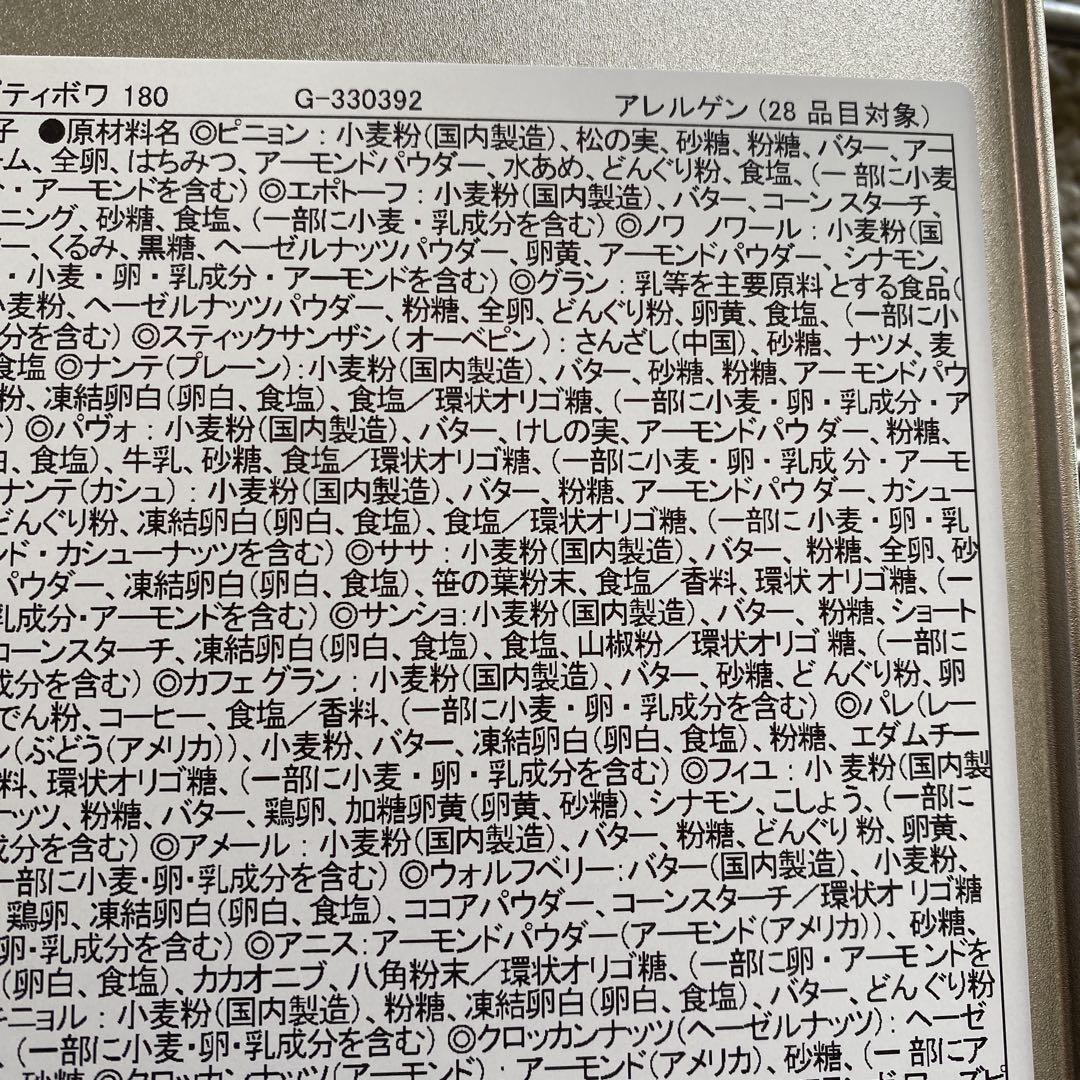 ティボワ 180 G-330392 アレルゲン（28 品目対象）
子 ●原材料名 ◎ピニョン：小麦粉（国内製造）、松の実、砂糖、粉糖、バター、アー
ーム、全卵、はちみつ、アーモンドパウダー、水あめ、どんぐり粉、食塩、（一部に小麦
・アーモンドを含む） ◎エポトーフ：小麦粉（国内製造）、バター、コーンスターチ、
ニング、砂糖、食塩、（一部に小麦・乳成分を含む） ◎ノワ ノワール：小麦粉（国
ー、くるみ、黒糖、ヘーゼルナッツパウダー、卵黄、アーモンドパウダー、シナモン、
・小麦・卵・乳成分・アーモンドを含む） ◎グラン：乳等を主要原料とする食品（
小麦粉、ヘーゼルナッツパウダー、粉糖、全卵、どんぐり粉、卵黄、食塩、（一部に小
分を含む） ◎スティックサンザシ（オーベピン）：さんざし（中国）、砂糖、ナツメ、麦
食塩 ◎ナンテ（プレーン）：小麦粉（国内製造）、バター、砂糖、粉糖、アーモンドパウ
粉、凍結卵白（卵白、食塩）、食塩／環状オリゴ糖、（一部に小麦・卵・乳成分・ア
） ◎パヴォ：小麦粉（国内製造）、バター、けしの実、アーモンドパウダー、粉糖、
白、食塩）、牛乳、砂糖、食塩／環状オリゴ糖、（一部に小麦・卵・乳成分・アーモ
ナンテ（カシュ）：小麦粉（国内製造）、バター、粉糖、アーモンドパウダー、カシュー
どんぐり粉、凍結卵白（卵白、食塩）、食塩／環状オリゴ糖、（一部に小麦・卵・乳
ンド・カシューナッツを含む） ◎ササ：小麦粉（国内製造）、バター、粉糖、全卵、砂
パウダー、凍結卵白（卵白、食塩）、笹の葉粉末、食塩／香料、環状オリゴ糖、（一
乳成分・アーモンドを含む） ◎サンショ：小麦粉（国内製造）、バター、粉糖、ショート
コーンスターチ、凍結卵白（卵白、食塩）、食塩、山椒粉／環状オリゴ糖、（一部に
成分を含む） ◎カフェグラン：小麦粉（国内製造）、バター、砂糖、どんぐり粉、卵
でん粉、コーヒー、食塩／香料、（一部に小麦・卵・乳成分を含む） ◎パレ（レー
ン（ぶどう（アメリカ））、小麦粉、バター、凍結卵白（卵白、食塩）、粉糖、エダムチー
料、環状オリゴ糖、（一部に小麦・卵・乳成分を含む） ◎フィユ：小麦粉（国内製
ナッツ、粉糖、バター、鶏卵、加糖卵黄（卵黄、砂糖）、シナモン、こしょう、（一部に
成分を含む） ◎アメール：小麦粉（国内製造）、バター、粉糖、どんぐり粉、卵黄、
一部に小麦・卵・乳成分を含む） ◎ウォルフベリー：バター（国内製造）、小麦粉、
鶏卵、凍結卵白（卵白、食塩）、ココアパウダー、コーンスターチ／環状オリゴ糖
卵・乳成分を含む） ◎アニス：アーモンドパウダー（アーモンド（アメリカ））、砂糖、
（卵白、食塩）、カカオニブ、八角粉末／環状オリゴ糖、（一部に卵・アーモンドを
キニョル：小麦粉（国内製造）、粉糖、凍結卵白（卵白、食塩）、バター、どんぐり粉
、（一部に小麦・卵・乳成分を含む） ◎クロッカンナッツ（ヘーゼルナッツ）：ヘーゼ
砂糖 ◎クロッカンナッツ（アーモンド）：アーモンド（アメリカ）、砂糖、（一部にア